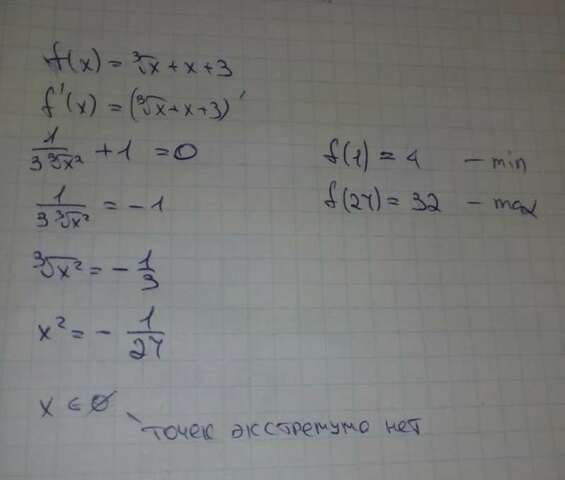 f(x) = ∛x + x + 3
f'(x) = (∛x + x + 3)'
1/(3∛x²) + 1 = 0
1/(3∛x²) = -1
∛x² = -1/3
x² = -1/27
x ∈ ∅
точек экстремума нет
f(1) = 4 - min
f(27) = 32 - max